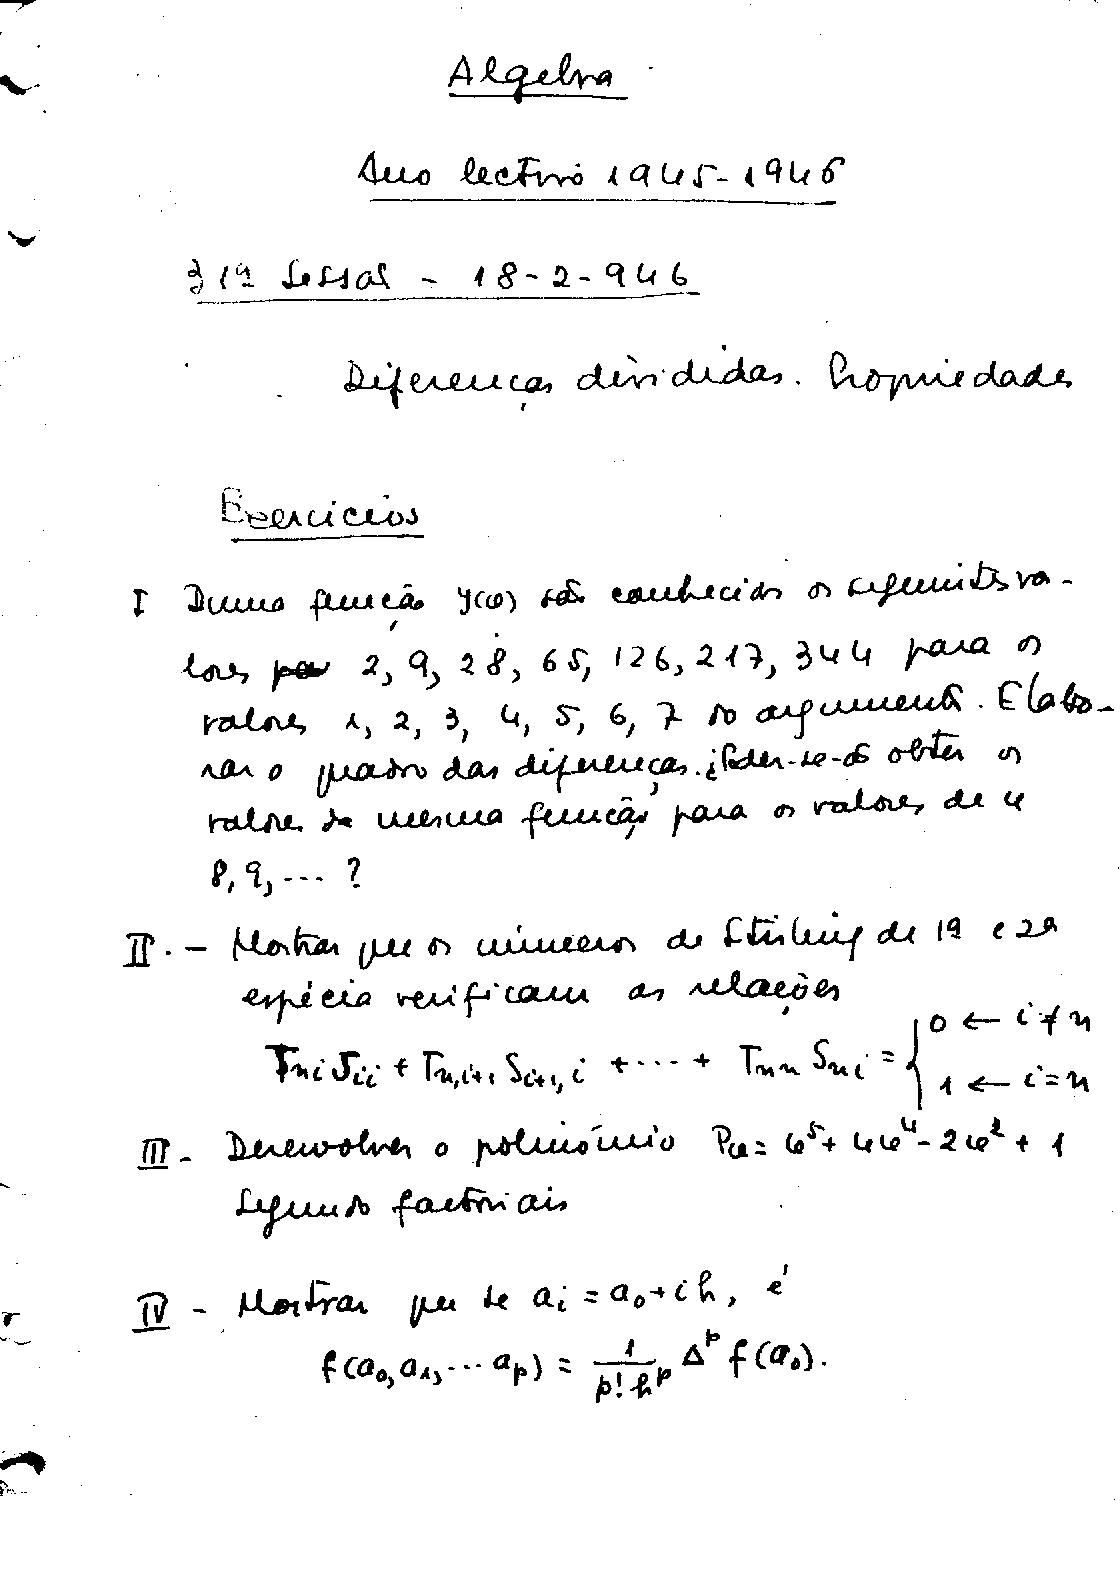 Algebra
Ano lectivo 1945-1946
31ª Sessão - 18-2-946
Diferenças divididas. Propriedades
Exercicios
I Duma função y(x) são conhecidos os seguintes va-
lores 2, 9, 28, 65, 126, 217, 344 para os
valores 1, 2, 3, 4, 5, 6, 7 do argumento. Elabo-
rar o quadro das diferenças. ¿Poder-se-ão obter os
valores da mesma função para os valores de x
8, 9, ... ?
II. - Mostrar que os números de Stirling de 1ª e 2ª
espécie verificam as relações
Tni Sii + Tn,i+1 Si+1,i + ... + Tnn Sni = { 0 ← i≠n
1 ← i=n
III - Desenvolver o polinómio Px = x⁵ + 4x⁴ - 2x² + 1
segundo factoriais
IV - Mostrar que se ai = a0 + ih, é
f(a0, a1, ... ap) = 1/(p! hᵖ) Δᵖ f(a0).